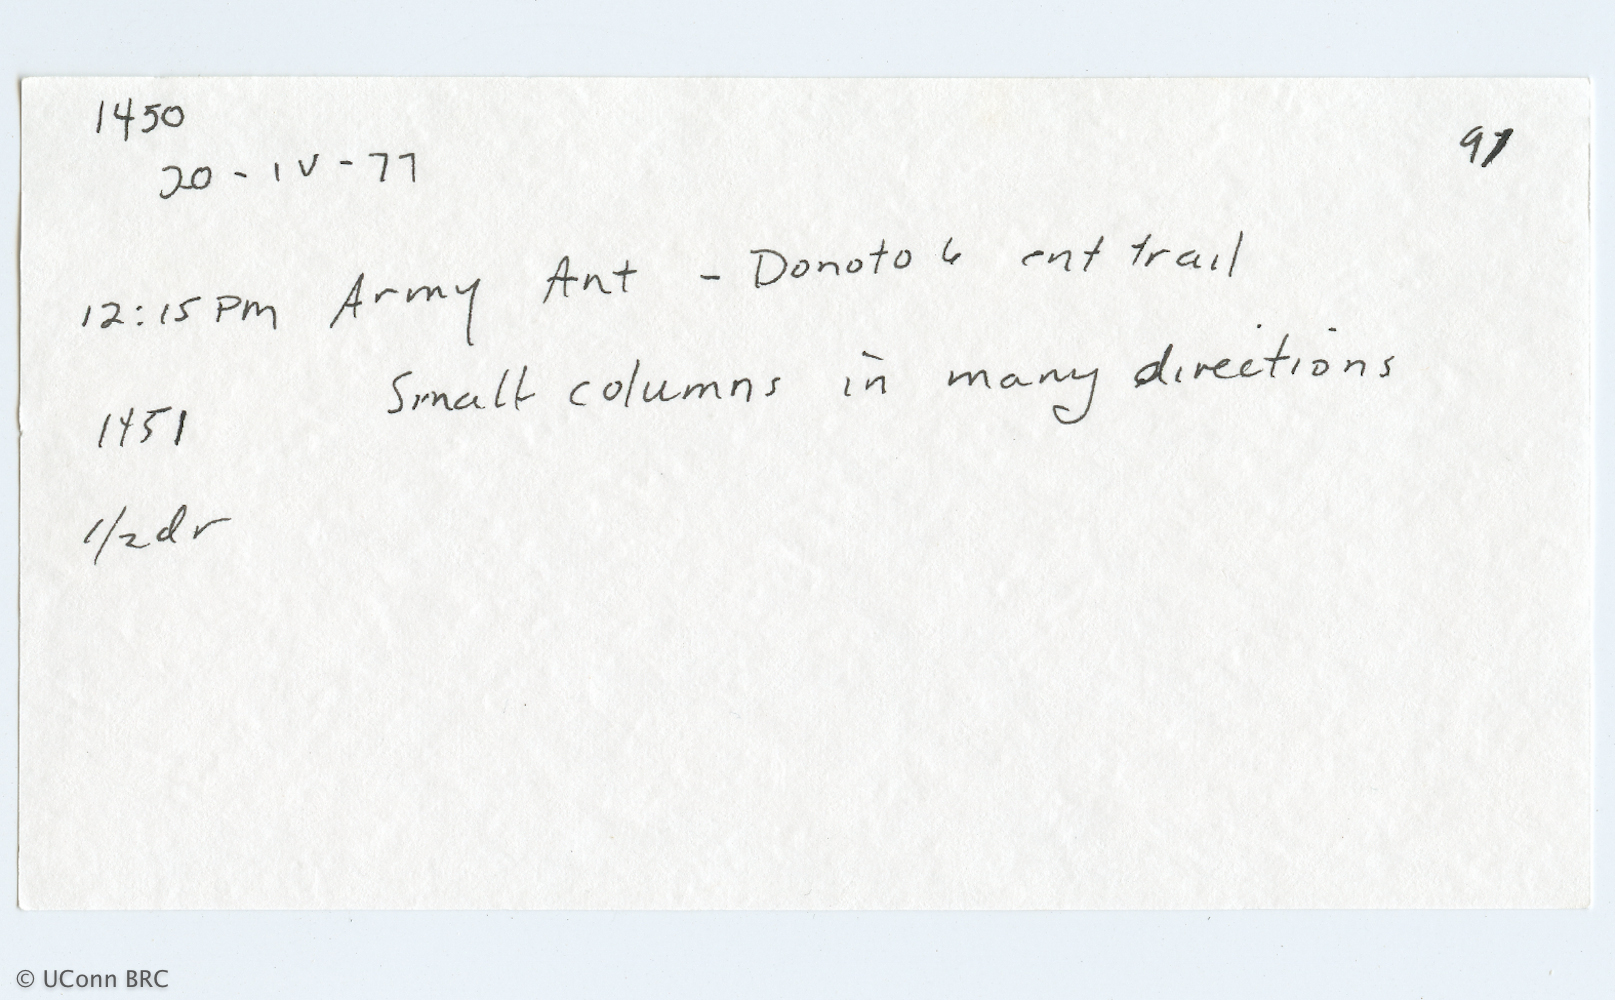 1450
91
20-IV-77
12:15 PM Army Ant - Donoto 6 ent trail
Small columns in many directions
1451
1/2 dr
© UConn BRC